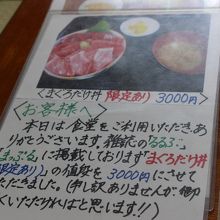 <まぐろだけ丼 限定あり 3000円>
<お客様へ>
本日は食堂をご利用いただきあり
がとうございます。雑誌の「るるぶ」
「まっぷる」に掲載しております「まぐろだけ丼
あり」の値段を3000円にさせて
いただきました。(申し訳ありませんが、御
いただければと思います!!)